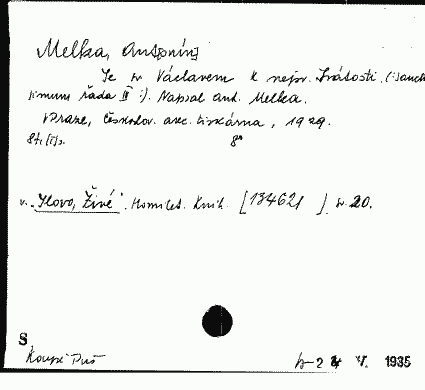 Melka, Antonín
Se sv. Václavem k nejsv. Svátosti (:Sanctis-
simum řada II :). Napsal Ant. Melka.
V Praze, českoslov. akc. tiskárna, 1929.
84,(I)s. 8°
v. „Slovo, Živé“. Homilet. knih. [134621 ] sv. 20.
S,
Koupě Puš 2 4 V. 1935